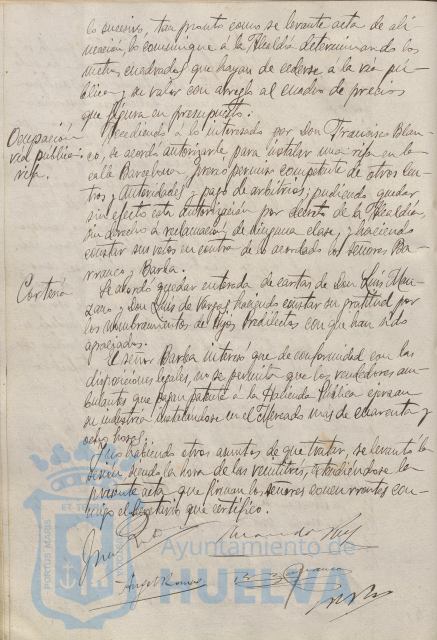 lo sucesivo, tan pronto como se levante acta de ali-
neación, lo comunique á la Alcaldía determinando los
metros cuadrados que hayan de cederse á la vía pú-
blica y su valor con arreglo al cuadro de precios
que figura en presupuesto.
Ocupación vía pública rifa.
Accediendo á lo interesado por Don Francisco Blan-
co, se acordó autorizarle para instalar una rifa en la
calle Barcelona, previo permiso competente de otros Cen-
tros y Autoridades y pago de arbitrios; pudiendo quedar
sin efecto esta autorización por decreto de la Alcaldía,
sin derecho a reclamación de ninguna clase, y haciendo
constar sus votos en contra de lo acordado los señores Ba-
rranco y Barba.
Cortesía
Se acordó quedar enterada de cartas de Don Luis Man-
zano y Don Luis de Vargas haciendo constar su gratitud por
los nombramientos de Hijos Predilectos con que han sido
agraciados.
El señor Barba interesó que de conformidad con las
disposiciones legales, no se permita que los vendedores am-
bulantes que pagan patente á la Hacienda Pública ejerzan
su industria instalándose en el Mercado mas de cuarenta y
ocho horas.
Y no habiendo otros asuntos de que tratar, se levantó la
sesión siendo la hora de las veintitrés, extendiéndose la
presente acta que firman los señores concurrentes con-
migo el Secretario que certifico.
PORTUS MARIS
ET TE
Ayuntamiento de
HUELVA